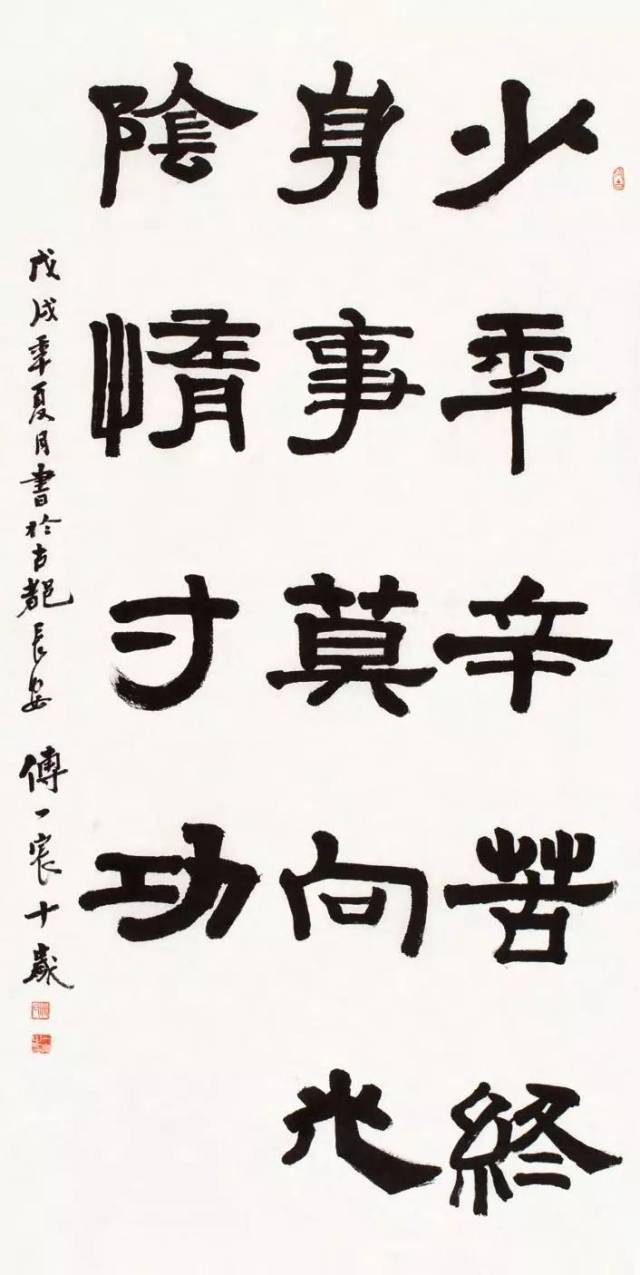 少年辛苦終
身事莫向光
陰惰寸功
戊戌年夏月書於古都長安 傅一宸十歲